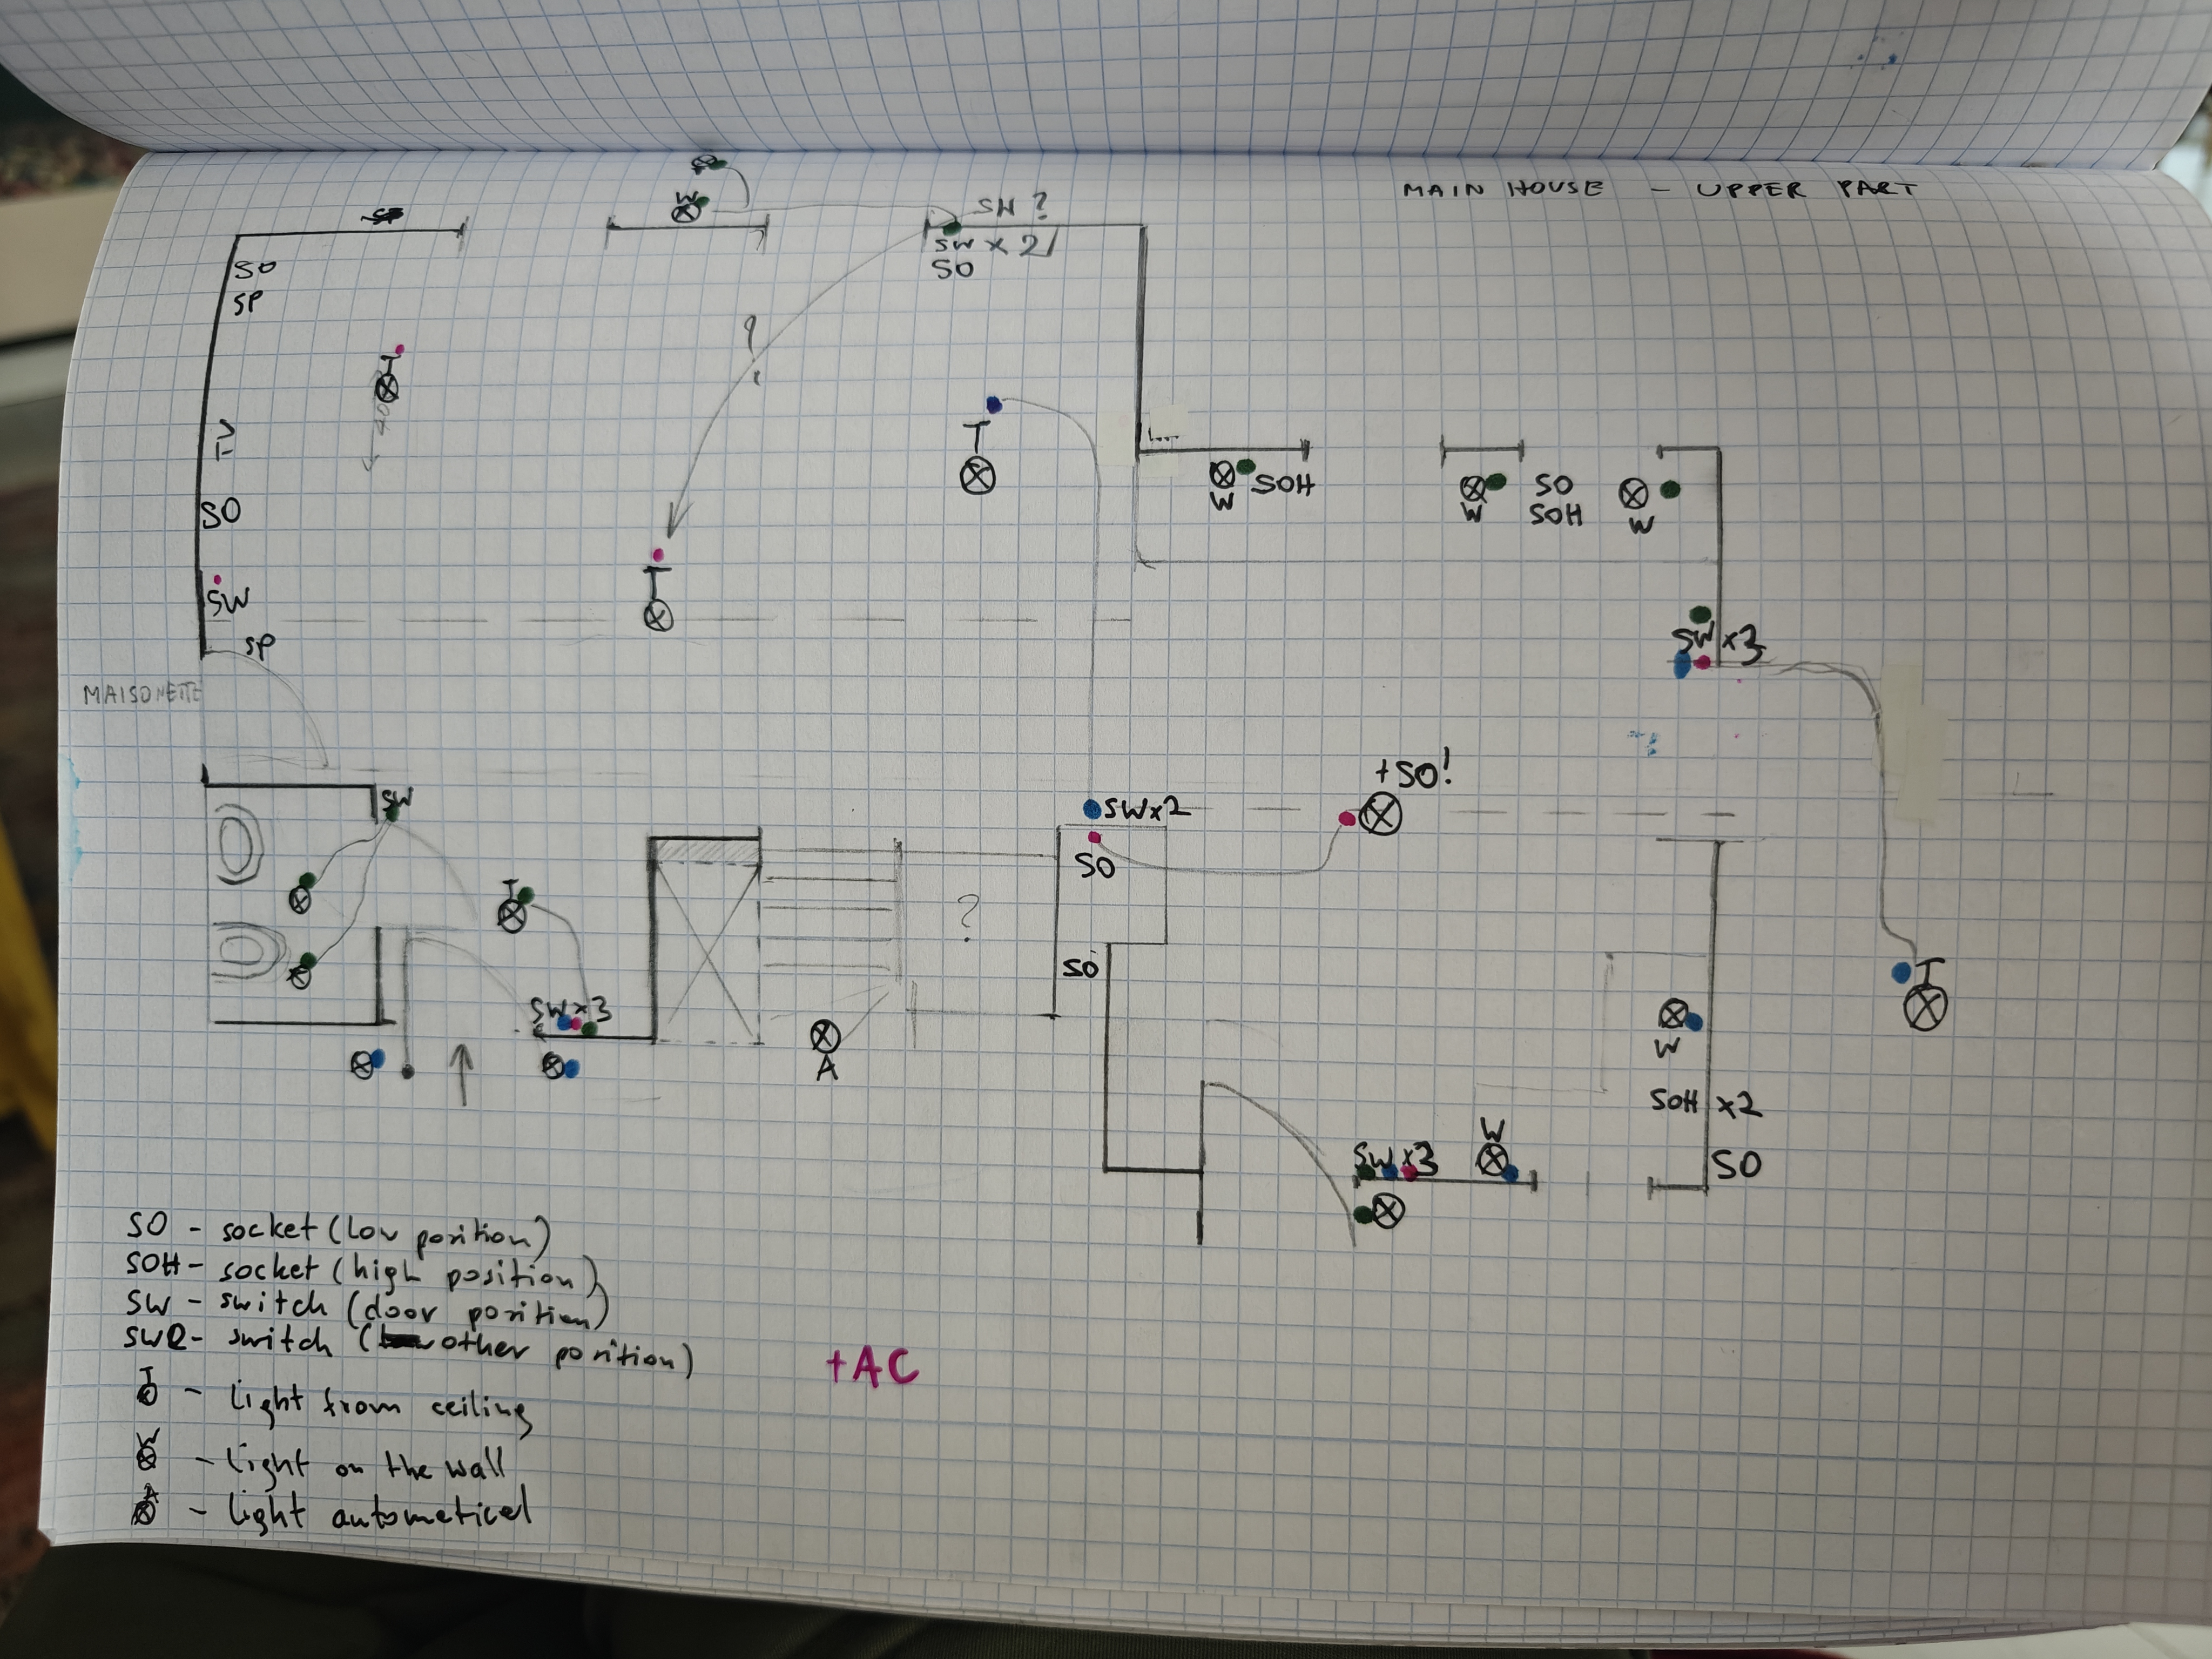 MAIN HOUSE - UPPER PART
W
SW ?
SW x 2
SO
SO
SP
T
40
?
TV
T
W
SOH
W
SO
SOH
W
SO
T
SW
SP
SW x3
MAISONETTE
+SO!
SW
SWx2
SO
T
?
SO
T
SW x3
W
A
SOH x2
W
SW x3
SO
SO - socket (low position)
SOH - socket (high position)
SW - switch (door position)
SWR - switch (other position)
T - light from ceiling
W - light on the wall
A - light autometicel
+AC